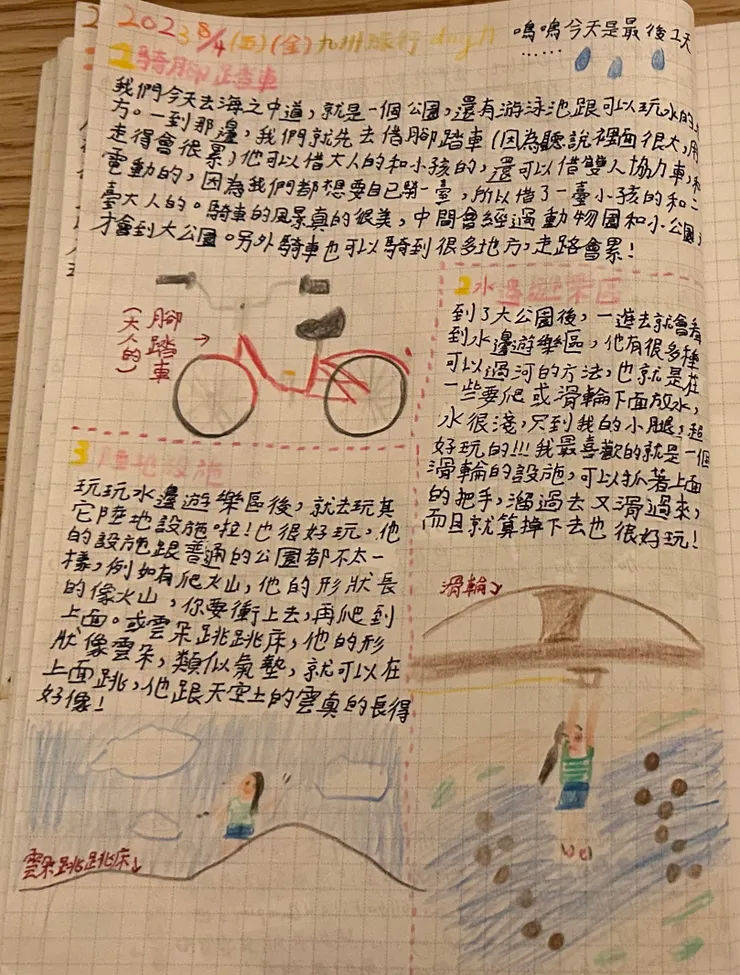 2023 8/4 (五)(金) 九州旅行 day11
嗚嗚今天是最後1天
……
1 騎腳踏車
我們今天去海之中道，就是一個公園，還有游泳池跟可以玩水的
方。一到那邊，我們就先去借腳踏車(因為聽說裡面很大，用
走得會很累)他可以借大人的和小孩的，還可以借雙人協力車，和
電動的，因為我們都想要自己騎一臺，所以借了一臺小孩的和二
臺大人的。騎車的風景真的很美，中間會經過動物園和小公園，
才會到大公園。另外騎車也可以騎到很多地方，走路會累！
腳踏車
(大人的)
2 水邊遊樂區
到了大公園後，一進去就會看
到水邊遊樂區，他有很多種
可以過河的方法，也就是在
一些要爬或滑輪下面放水，
水很淺，只到我的小腿，超
好玩的!!!我最喜歡的就是一個
滑輪的設施，可以抓著上面
的把手，溜過去又滑過來，
而且就算掉下去也很好玩！
滑輪
3 陸地設施
玩玩水邊遊樂區後，就去玩其
它陸地設施啦！也很好玩，他
的設施跟普通的公園都不太一
樣，例如有爬火山，他的形狀長
的像火山，你要衝上去，再爬到
上面。或雲朵跳跳床，他的形
狀像雲朵，類似氣墊，就可以在
上面跳，他跟天空上的雲真的長得
好像！
雲朵跳跳床